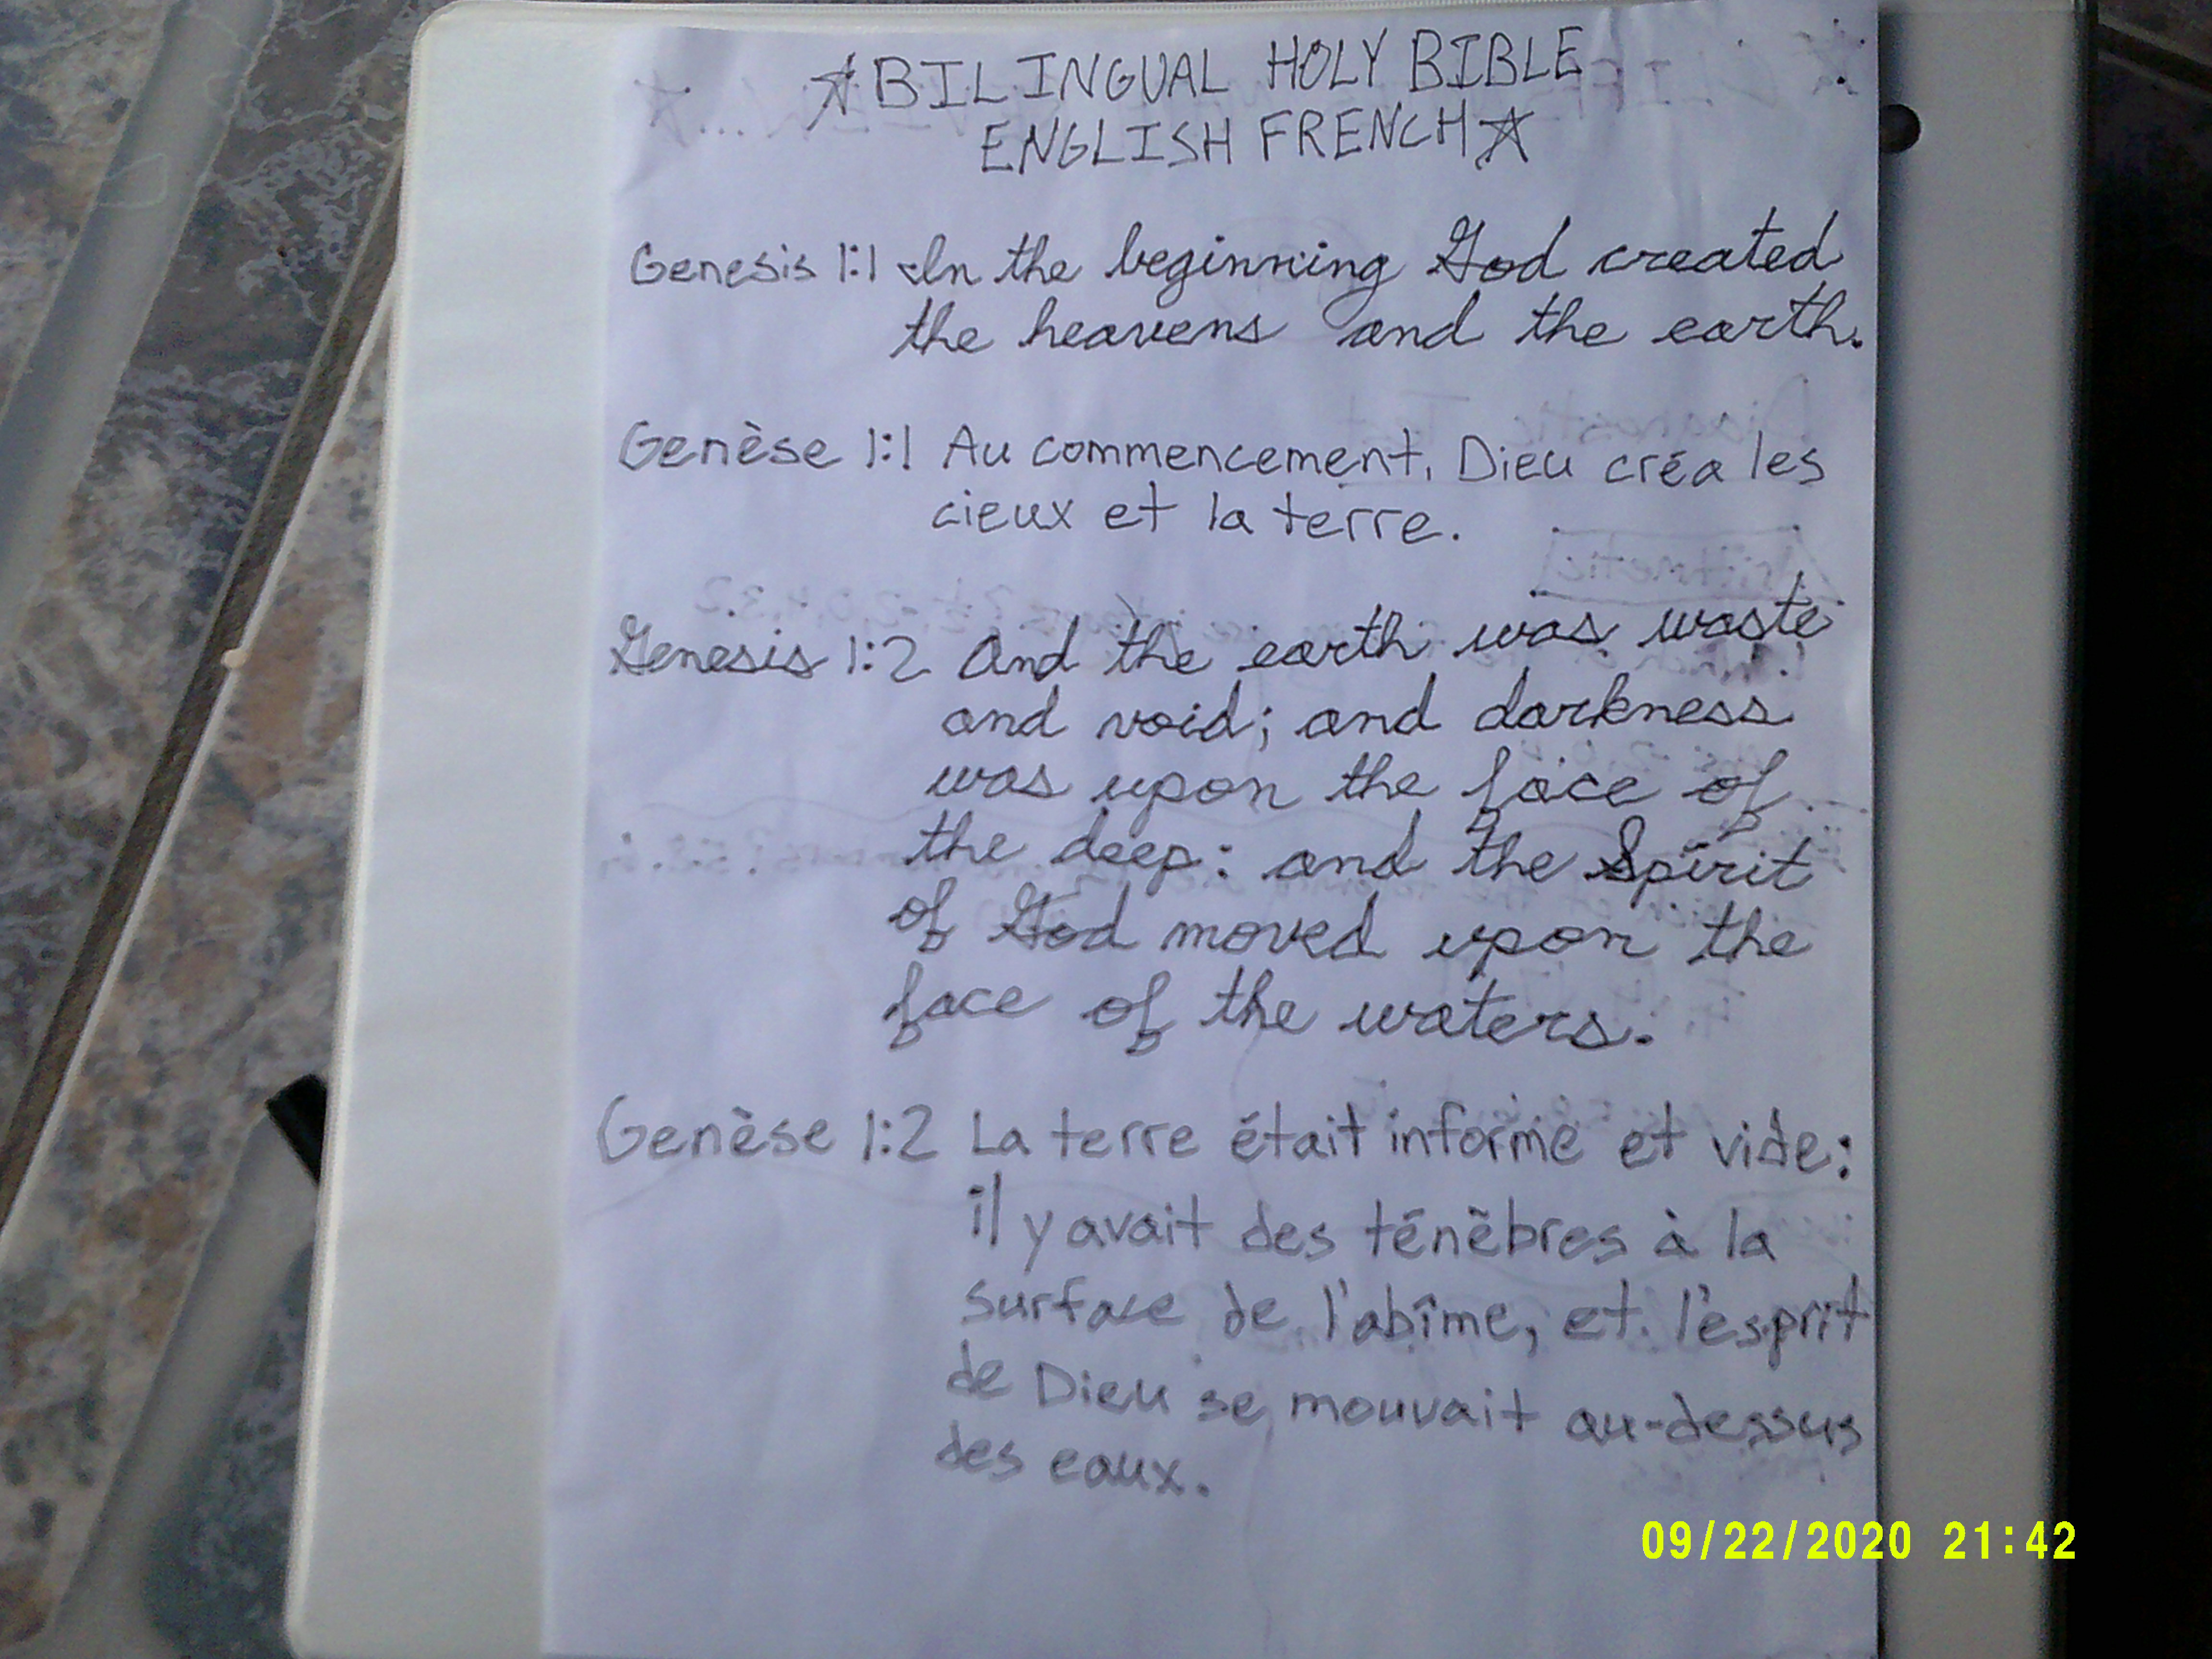 ☆ BILINGUAL HOLY BIBLE
ENGLISH FRENCH ☆
Genesis 1:1 In the beginning God created
the heavens and the earth.
Genèse 1:1 Au commencement, Dieu créa les
cieux et la terre.
Genesis 1:2 And the earth was waste
and void; and darkness
was upon the face of
the deep: and the Spirit
of God moved upon the
face of the waters.
Genèse 1:2 La terre était informe et vide:
il y avait des ténèbres à la
surface de l'abîme, et l'esprit
de Dieu se mouvait au-dessus
des eaux.
09/22/2020 21:42